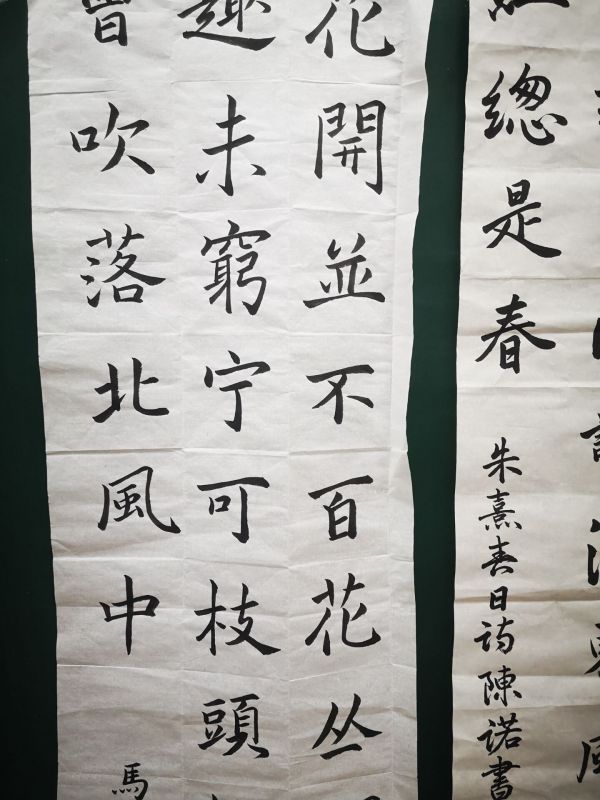 總是春
朱熹春日詩陳諾書
花開並不百花丛
趣未窮宁可枝頭
曾吹落北風中
馬